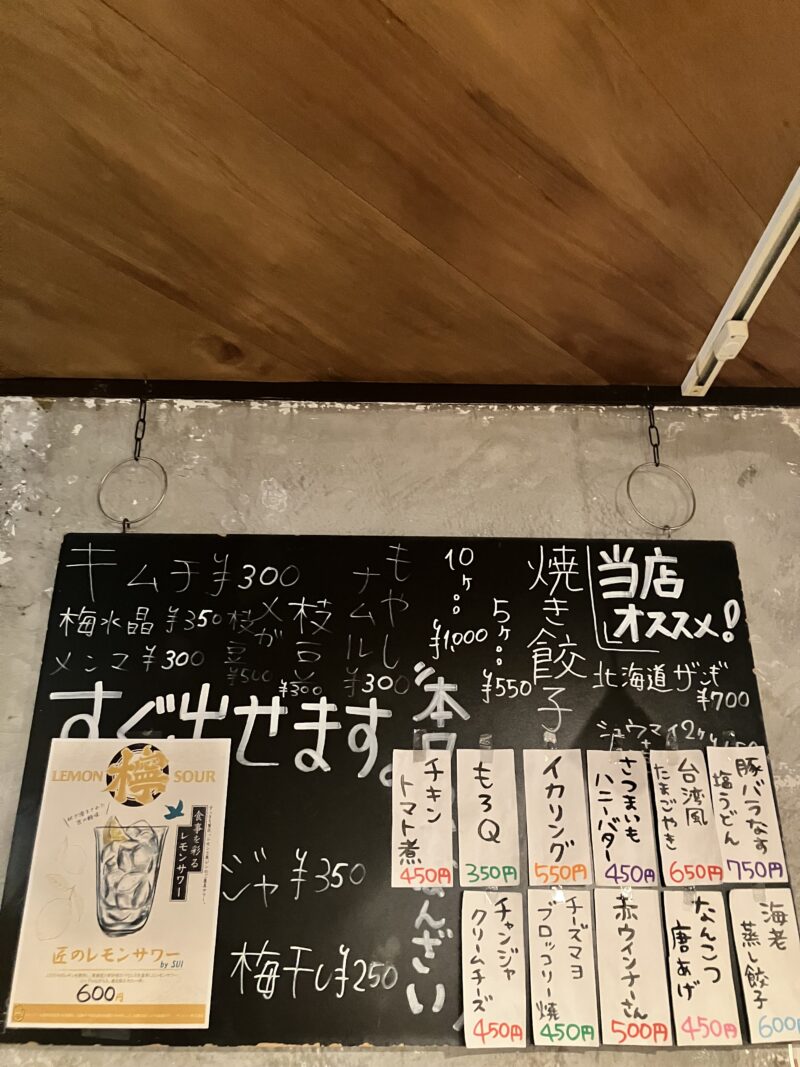 当店
オススメ!
北海道ザンギ
¥700
焼き餃子
5ヶ
¥550
10ヶ
¥1,000
もやし
ナムル
¥300
枝豆
¥300
枝豆
¥500
キムチ ¥300
梅水晶 ¥350
メンマ ¥300
すぐ出せます。
ジャ ¥350
梅干し ¥250
豚バラなす
塩うどん
750円
台湾風
たまごやき
650円
さつまいも
ハニーバター
450円
イカリング
550円
もろQ
350円
チキン
トマト煮
450円
海老
蒸し餃子
600円
なんこつ
唐あげ
450円
赤ウインナーさん
500円
チーズマヨ
ブロッコリー焼
450円
チャンジャ
クリームチーズ
450円
LEMON 檸 SOUR
食事を彩る
レモンサワー
匠のレモンサワー
by SUI
600円